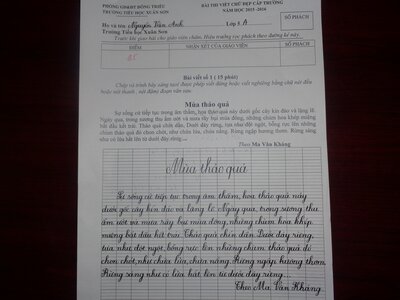 PHÒNG GD&ĐT ĐÔNG TRIỀU
TRƯỜNG TIỂU HỌC XUÂN SƠN
BÀI THI VIẾT CHỮ ĐẸP CẤP TRƯỜNG
NĂM HỌC 2015-2016
SỐ PHÁCH
Họ và tên Nguyễn Vân Anh Lớp 5 A
Trường Tiểu học Xuân Sơn
Trước khi giao bài cho giáo viên chấm, Hiệu trưởng rọc phách theo đường kẻ này.
ĐIỂM
NHẬN XÉT CỦA GIÁO VIÊN
SỐ PHÁCH
Bài viết số 1 ( 15 phút)
Chép và trình bày sáng tạo( được phép viết đứng hoặc viết nghiêng bằng chữ nét đều
hoặc nét thanh, nét đậm) đoạn văn sau.
Mùa thảo quả
Sự sống cứ tiếp tục trong âm thầm, hoa thảo quả nảy dưới gốc cây kín đáo và lặng lẽ.
Ngày qua, trong sương thu ẩm ướt và mưa rây bụi mùa đông, những chùm hoa khép miệng
bắt đầu kết trái. Thảo quả chín dần. Dưới đáy rừng, tựa như đột ngột, bỗng rực lên những
chùm thảo quả đỏ chon chót, như chứa lửa, chứa nắng. Rừng ngập hương thơm. Rừng sáng
như có lửa hắt lên từ dưới đáy rừng....
Theo Ma Văn Kháng
Mùa thảo quả
Sự sống cứ tiếp tục trong âm thầm, hoa thảo quả nảy
dưới gốc cây kín đáo và lặng lẽ. Ngày qua, trong sương thu
ẩm ướt và mưa rây bụi mùa đông, những chùm hoa khép
miệng bắt đầu kết trái. Thảo quả chín dần. Dưới đáy rừng,
tựa như đột ngột, bỗng rực lên những chùm thảo quả đỏ
chon chót, như chứa lửa, chứa nắng. Rừng ngập hương thơm.
Rừng sáng như có lửa hắt lên từ dưới đáy rừng...
Theo Ma Văn Kháng